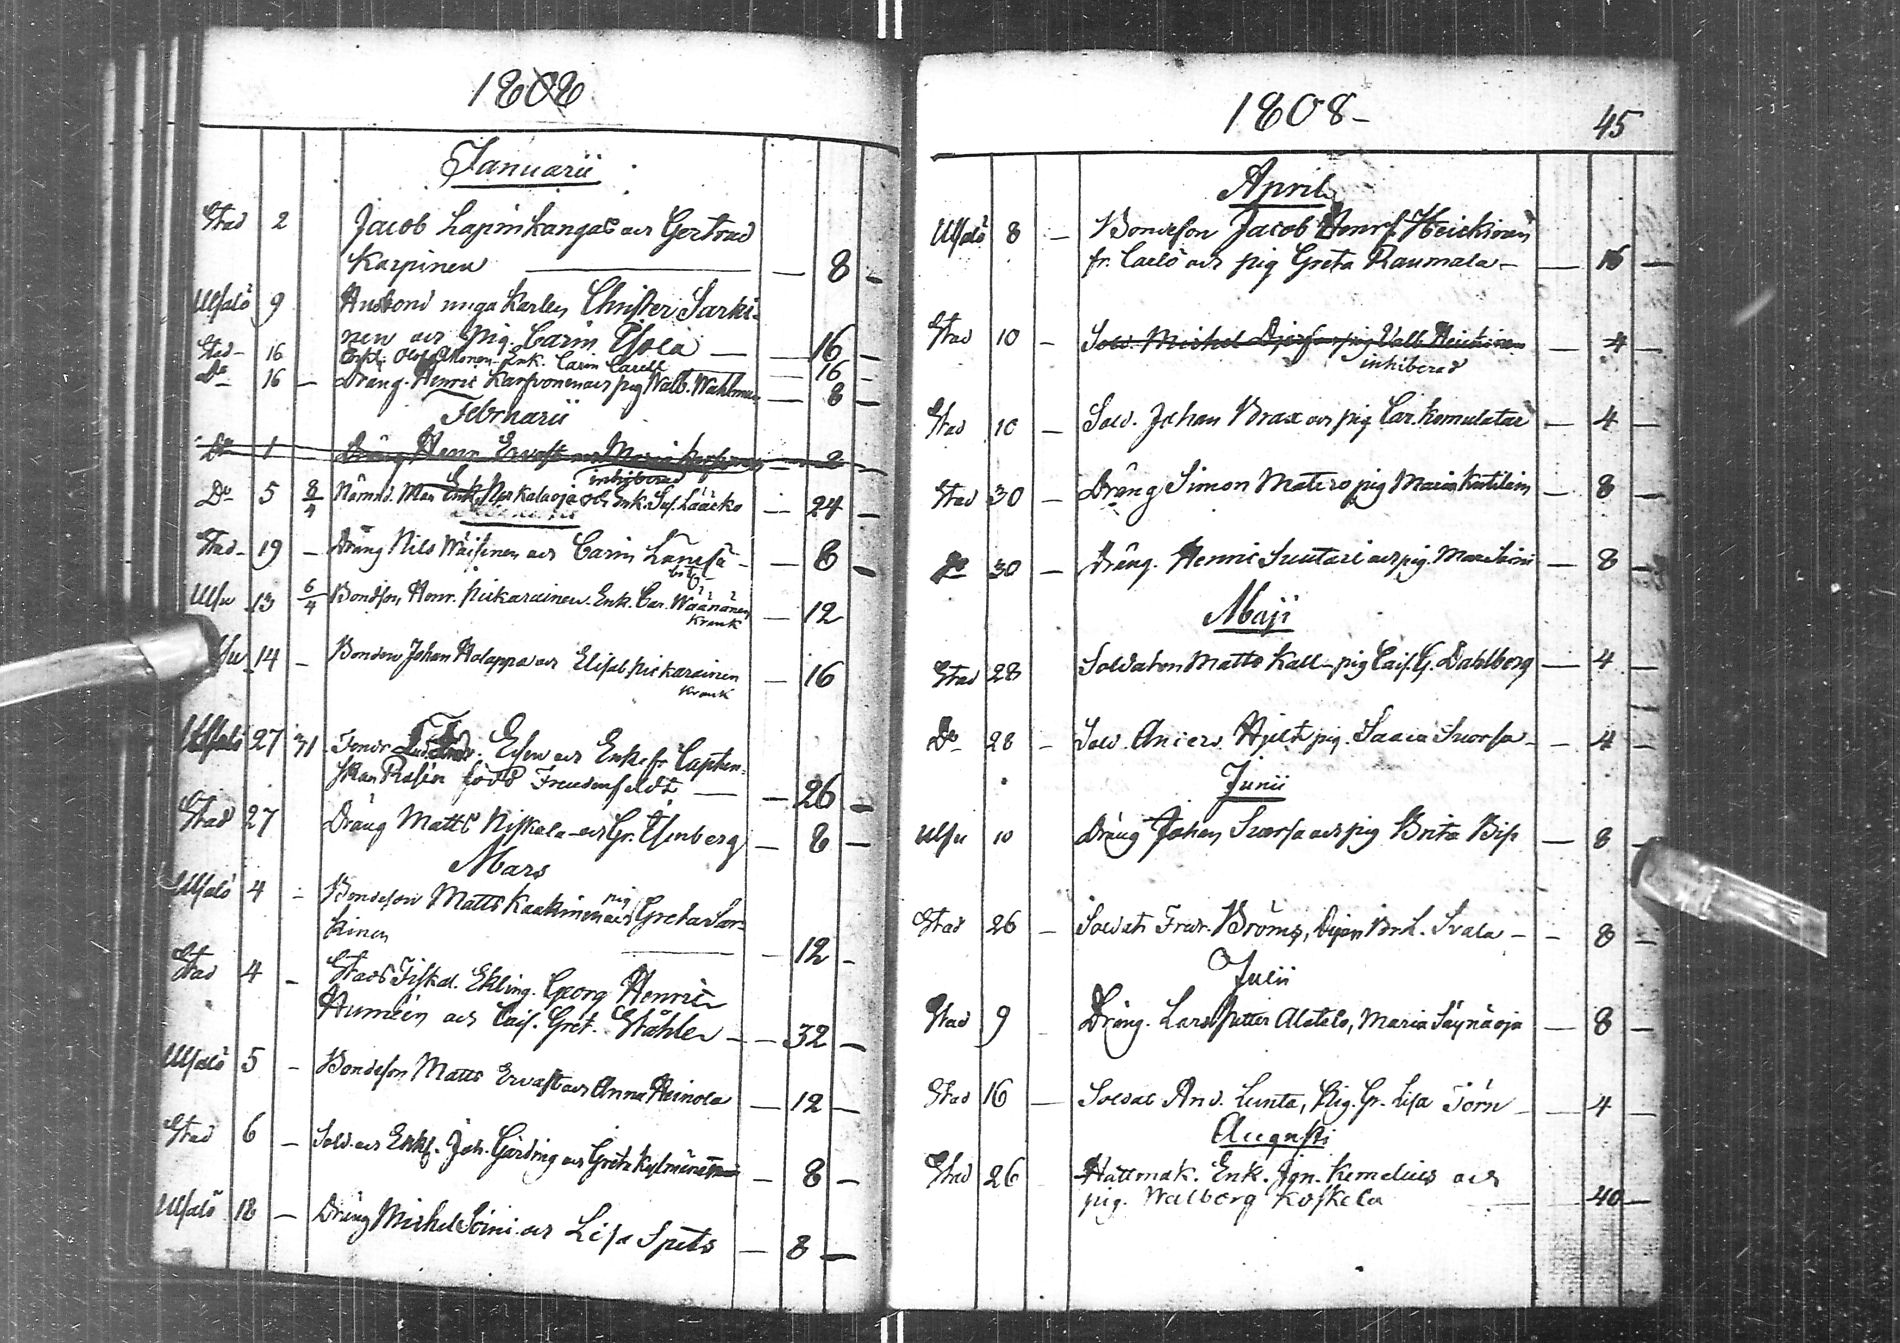 1808
Januarii
Stad 2 Jacob Lapinkangas och Gertrud
Karpinen — 8 —
Ulfalö 9 Husbond unga Karlen Christer Sarki-
nen och pig. Carin — 16 —
Stad — 16 Enkl. Olof Enk. Carin — 16 —
Do 16 — Dräng. Henric Karpvonen och pig Walb. — 8 —
Februarii
Do 1 Dräng Henr. Ervast och Maria — 8 —
inhiberad
Do 5 8/4 Nämnd. Man Enk. Niskalaoja och Enk. Lääcko — 24 —
Stad — 19 — Dräng Nils Wäisinen och Carin Länsä- — 8 —
Ulfu 13 6/4 Bondeson, Henr. Pickarainen. Enk. Car. Väänänen — 12
Krank
14 — Bonden Johan Halappa och Elisab. Pickarainen — 16
Krank
Ulfalö 27 31 Esen och Enkefr. Capten-
skan Rosin född Freudenfeldt — 26 —
Stad 27 Dräng Matts Niskala och Gr. Isenberg — 8 —
Mars
Ulfalö 4 — Bondeson Matts Kaakinen och pig Greta Sar-
kinen — 12 —
Stad 4 — Stads Fiskal. Ekling. Georg Henric
och Cais. Gret. Ståhle — 32 —
Ulfalö 5 — Bondeson Matts Ervast och Anna Heinola — 12 —
Stad 6 — Sold. och Enkl. Joh. Gärding och Greta — 8 —
Ulfalö 18 — Dräng Michel Soini och Lisa Spets — 8 —
1808 — 45
April
Ulfalö 8 — Bondeson Jacob Henrs. Heickinen
fr. Carlö och pig Greta Raumala — 16 —
Stad 10 — Sold. Michel pig Valb. Heickinen — 4 —
inhiberad
Stad 10 — Sold. Johan Brax och pig Car. — 4 —
Stad 30 — Dräng Simon Matero pig Maria — 8 —
Do 30 — Dräng. Henric Suutari och pig. — 8 —
Maji
Stad 28 Soldaten Matts Kall — pig Cais. G. Dahlberg — 4 —
Do 28 — Sold. Anders Hjelt pig. Saara Suorsa — 4 —
Junii
Ulfu 10 Dräng Johan Suorsa och pig Brita — 8 —
Stad 26 — Soldat. Fredr. Bröms, Brk. Svala — 8 —
Julii
Stad 9 — Dräng. Lars Petter Alatalo, Maria Säynäoja — 8 —
Stad 16 — Soldat And. Lunta, Pig. Gr. Lisa Törn — 4 —
Augusti
Stad 26 Hattmak. Enk. Jon. Kemelius och
pig. Walborg Koskela — 40 —